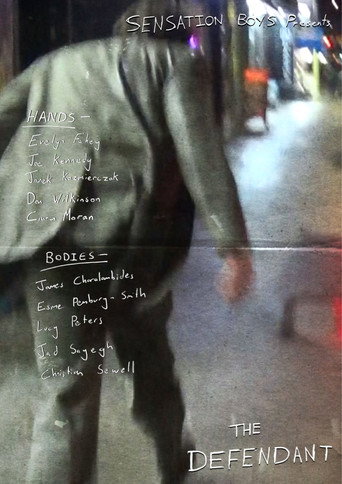 SENSATION BOYS Presents
HANDS –
Evelyn Fahey
Joe Kennedy
Janek Kazmierczak
Dan Wilkinson
Ciara Moran
BODIES –
James Charalambides
Esme Penburgh Smith
Lucy Peters
Jad Sayegh
Christian Sewell
THE
DEFENDANT